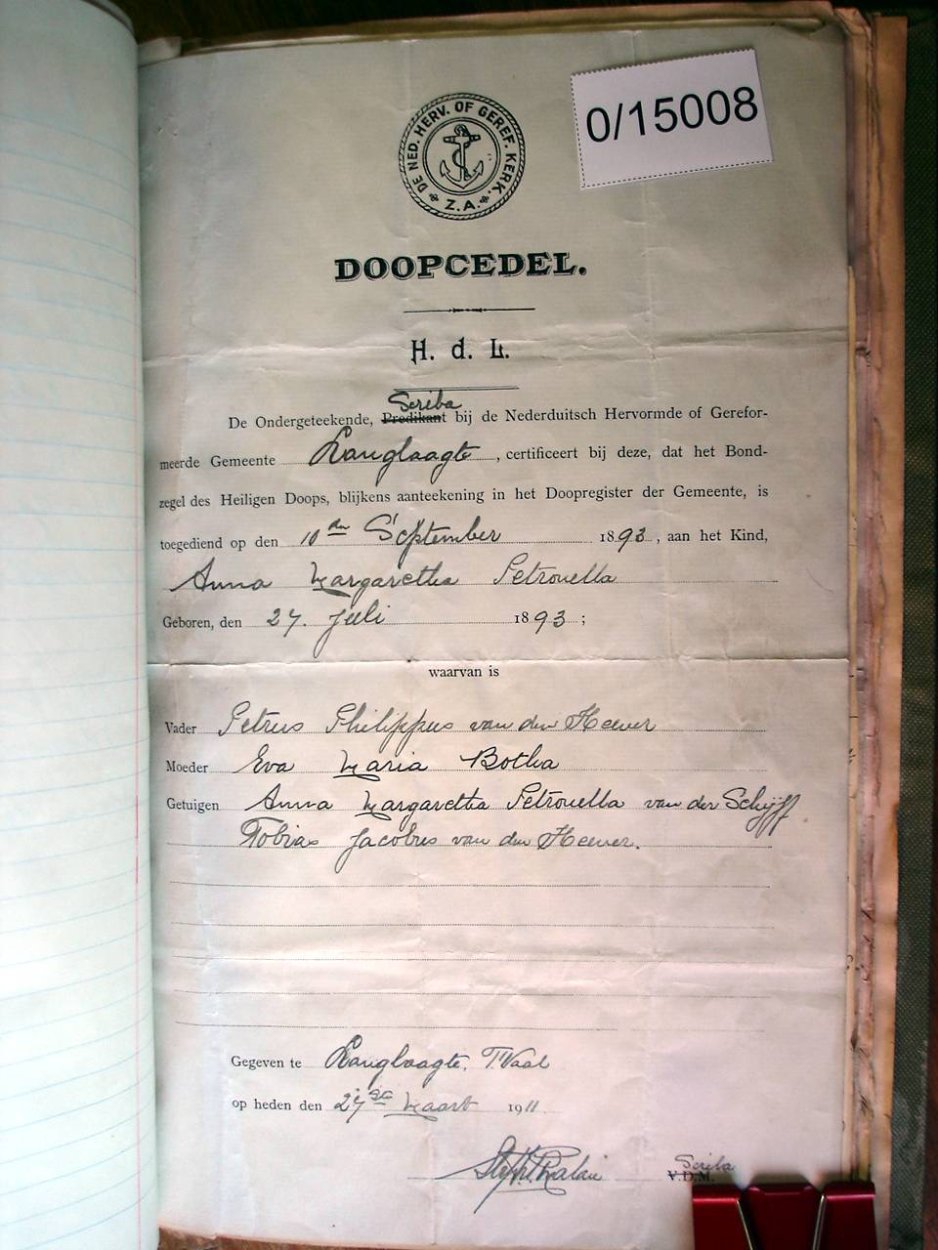 0/15008
DE NED. HERV. OF GEREF. KERK.
Z.A.
DOOPCEDEL.
H. d. L.
Scriba
De Ondergeteekende, Predikant bij de Nederduitsch Hervormde of Gerefor-
meerde Gemeente Langlaagte, certificeert bij deze, dat het Bond-
zegel des Heiligen Doops, blijkens aanteekening in het Doopregister der Gemeente, is
toegediend op den 10den September 1893, aan het Kind,
Anna Margaretha Petronella
Geboren, den 27. Juli 1893;
waarvan is
Vader Petrus Philippus van den Heever
Moeder Eva Maria Botha
Getuigen Anna Margaretha Petronella van der Schijff
Tobias Jacobus van den Heever.
Gegeven te Langlaagte, T'Vaal
op heden den 27ste Maart 1911
Scriba
V.D.M.